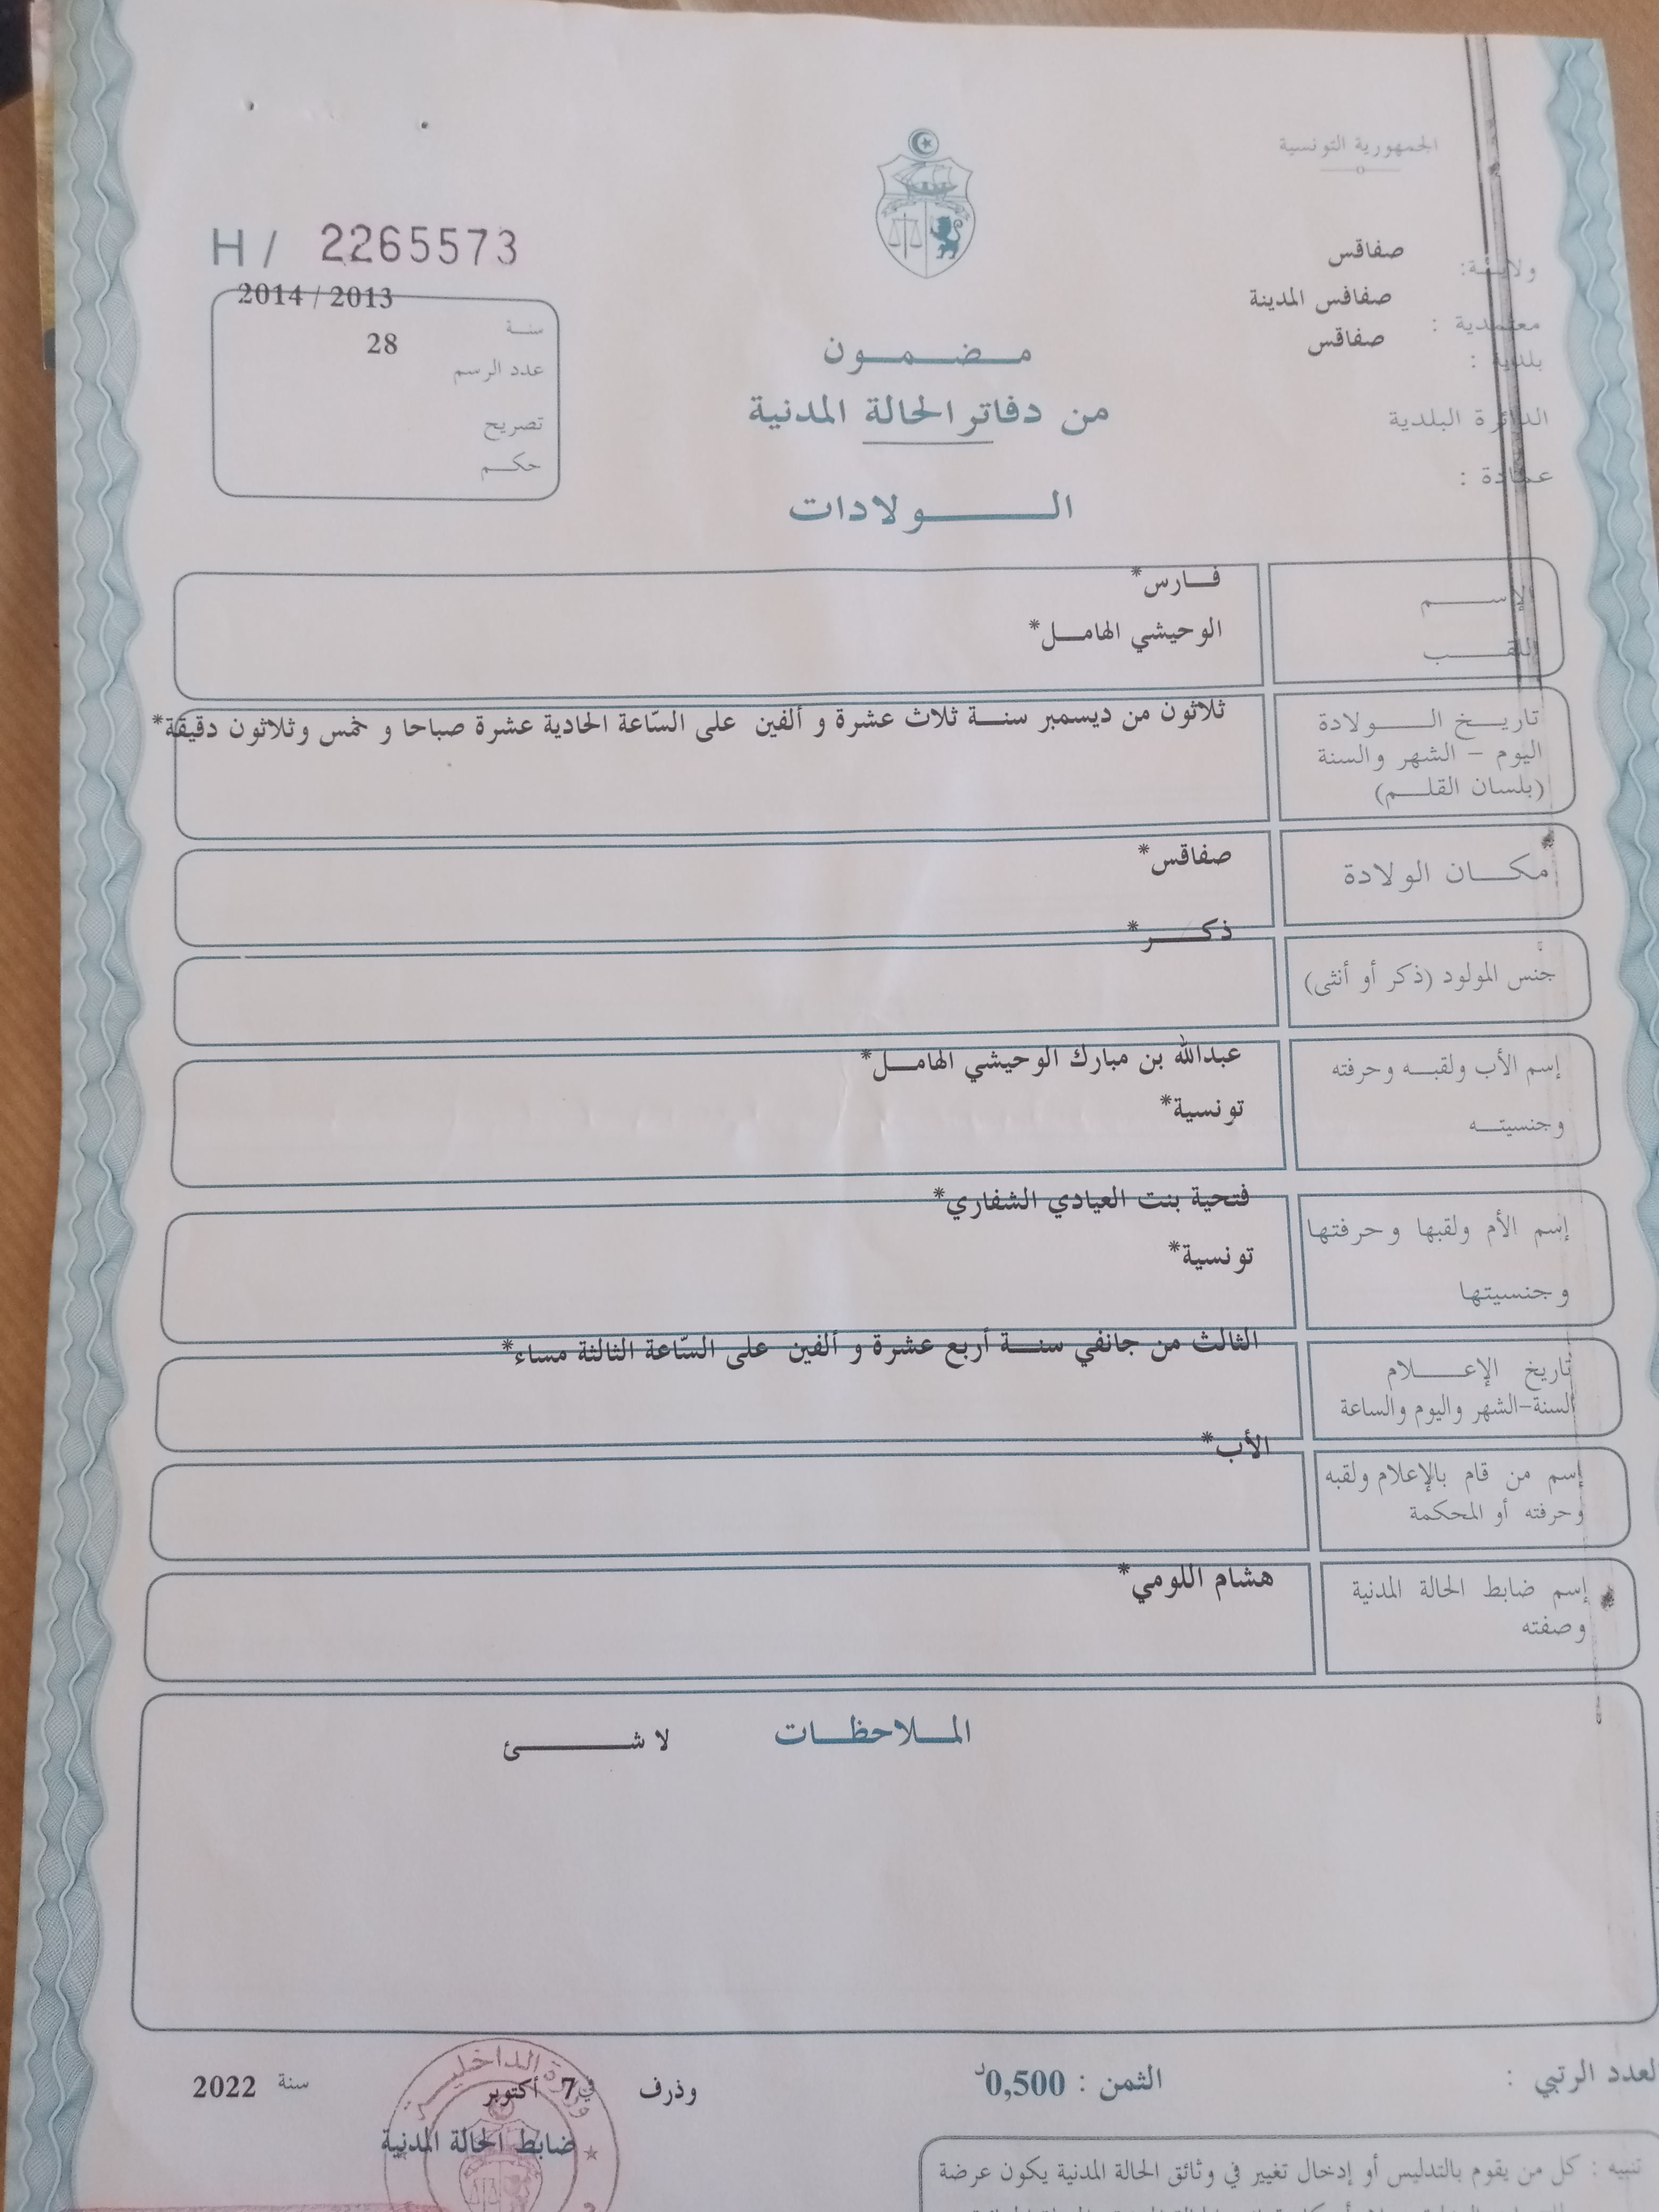 الجمهورية التونسية
H / 2265573
ولايـة: صفاقس
معتمدية : صفاقس المدينة
بلدية : صفاقس
الدائرة البلدية
عمادة :
2014 / 2013
سنـة
28
عدد الرسم
تصريح
حكـم
مـضـمـون
من دفاتر الحالة المدنية
الـولادات
الإسـم
فـارس*
اللقـب
الوحيشي الهامـل*
تاريـخ الـولادة
اليوم - الشهر والسنة
(بلسان القلـم)
ثلاثون من ديسمبر سنـة ثلاث عشرة و ألفين على السّاعة الحادية عشرة صباحا و خمس وثلاثون دقيقة*
مكـان الولادة
صفاقس*
جنس المولود (ذكر أو أنثى)
ذكـر*
إسم الأب ولقبـه وحرفته
وجنسيتـه
عبدالله بن مبارك الوحيشي الهامـل*
تونسية*
إسم الأم ولقبها وحرفتها
وجنسيتها
فتحية بنت العيادي الشفاري*
تونسية*
تاريخ الإعـلام
السنة-الشهر واليوم والساعة
الثالث من جانفي سنـة أربع عشرة و ألفين على السّاعة الثالثة مساء*
إسم من قام بالإعلام ولقبه
وحرفته أو المحكمة
الأب*
إسم ضابط الحالة المدنية
وصفته
هشام اللومي*
المـلاحظـات
لا شـئ
لعدد الرتبي :
الثمن : 0,500د
وذرف في 7 أكتوبر سنة 2022
ضابط الحالة المدنية
وزارة الداخليـة
تنبيه : كل من يقوم بالتدليس أو إدخال تغيير في وثائق الحالة المدنية يكون عرضة